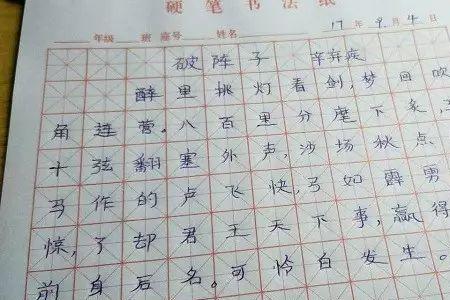 硬笔书法纸
年级 班 座号 姓名 17年 9月 4
破阵子 辛弃疾
醉里挑灯看剑,梦回吹
角连营。八百里分麾下炙,
十弦翻塞外声,沙场秋点
马作的卢飞快,弓如霹
惊,了却君王天下事,赢得
前身后名。可怜白发生。